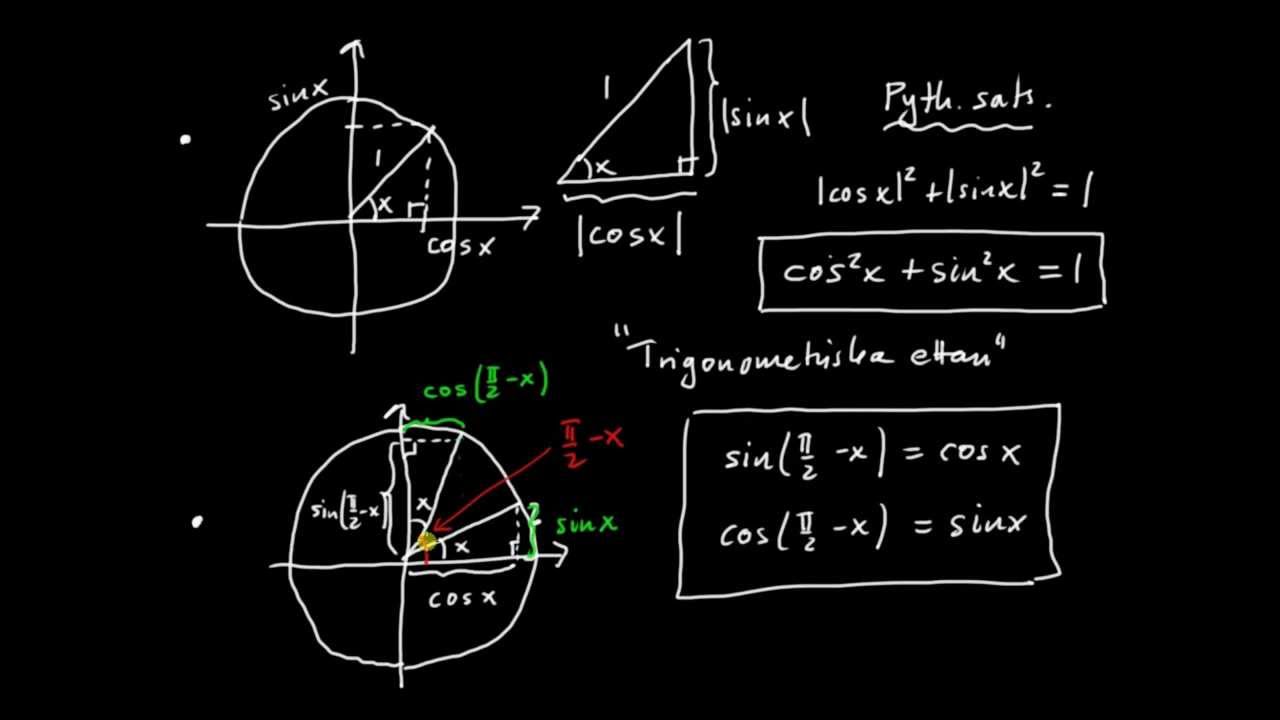 sinx
1
x
cosx
1
x
|sinx|
|cosx|
Pyth. sats.
|cosx|² + |sinx|² = 1
cos²x + sin²x = 1
"Trigonometriska ettan"
cos(π/2 - x)
π/2 - x
sin(π/2 - x)
x
x
sinx
cosx
sin(π/2 - x) = cosx
cos(π/2 - x) = sinx